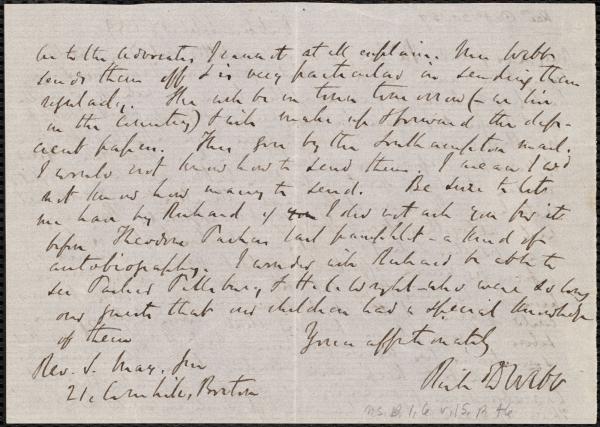 As to the Advocates, I cannot at all explain. Mrs Webb
sends them off & is very particular in sending them
regularly. She will be in town tomorrow (- we live
in the country) & will make up & forward the defi-
cient papers. This goes by the Southampton mail.
I would not know how to send them. I mean I wd
not know how many to send. Be sure to let
me have by Richard if I did not ask you for it
before Theodore Parkers last pamphlet - a kind of
autobiography. I wonder will Richard be able to
see Parker Pillsbury & H C Wright - who were so long
our guests that our children had a special knowledge
of them Yours affectionately
Rev. S. May, Jun Rich D Webb
21, Cornhill, Boston